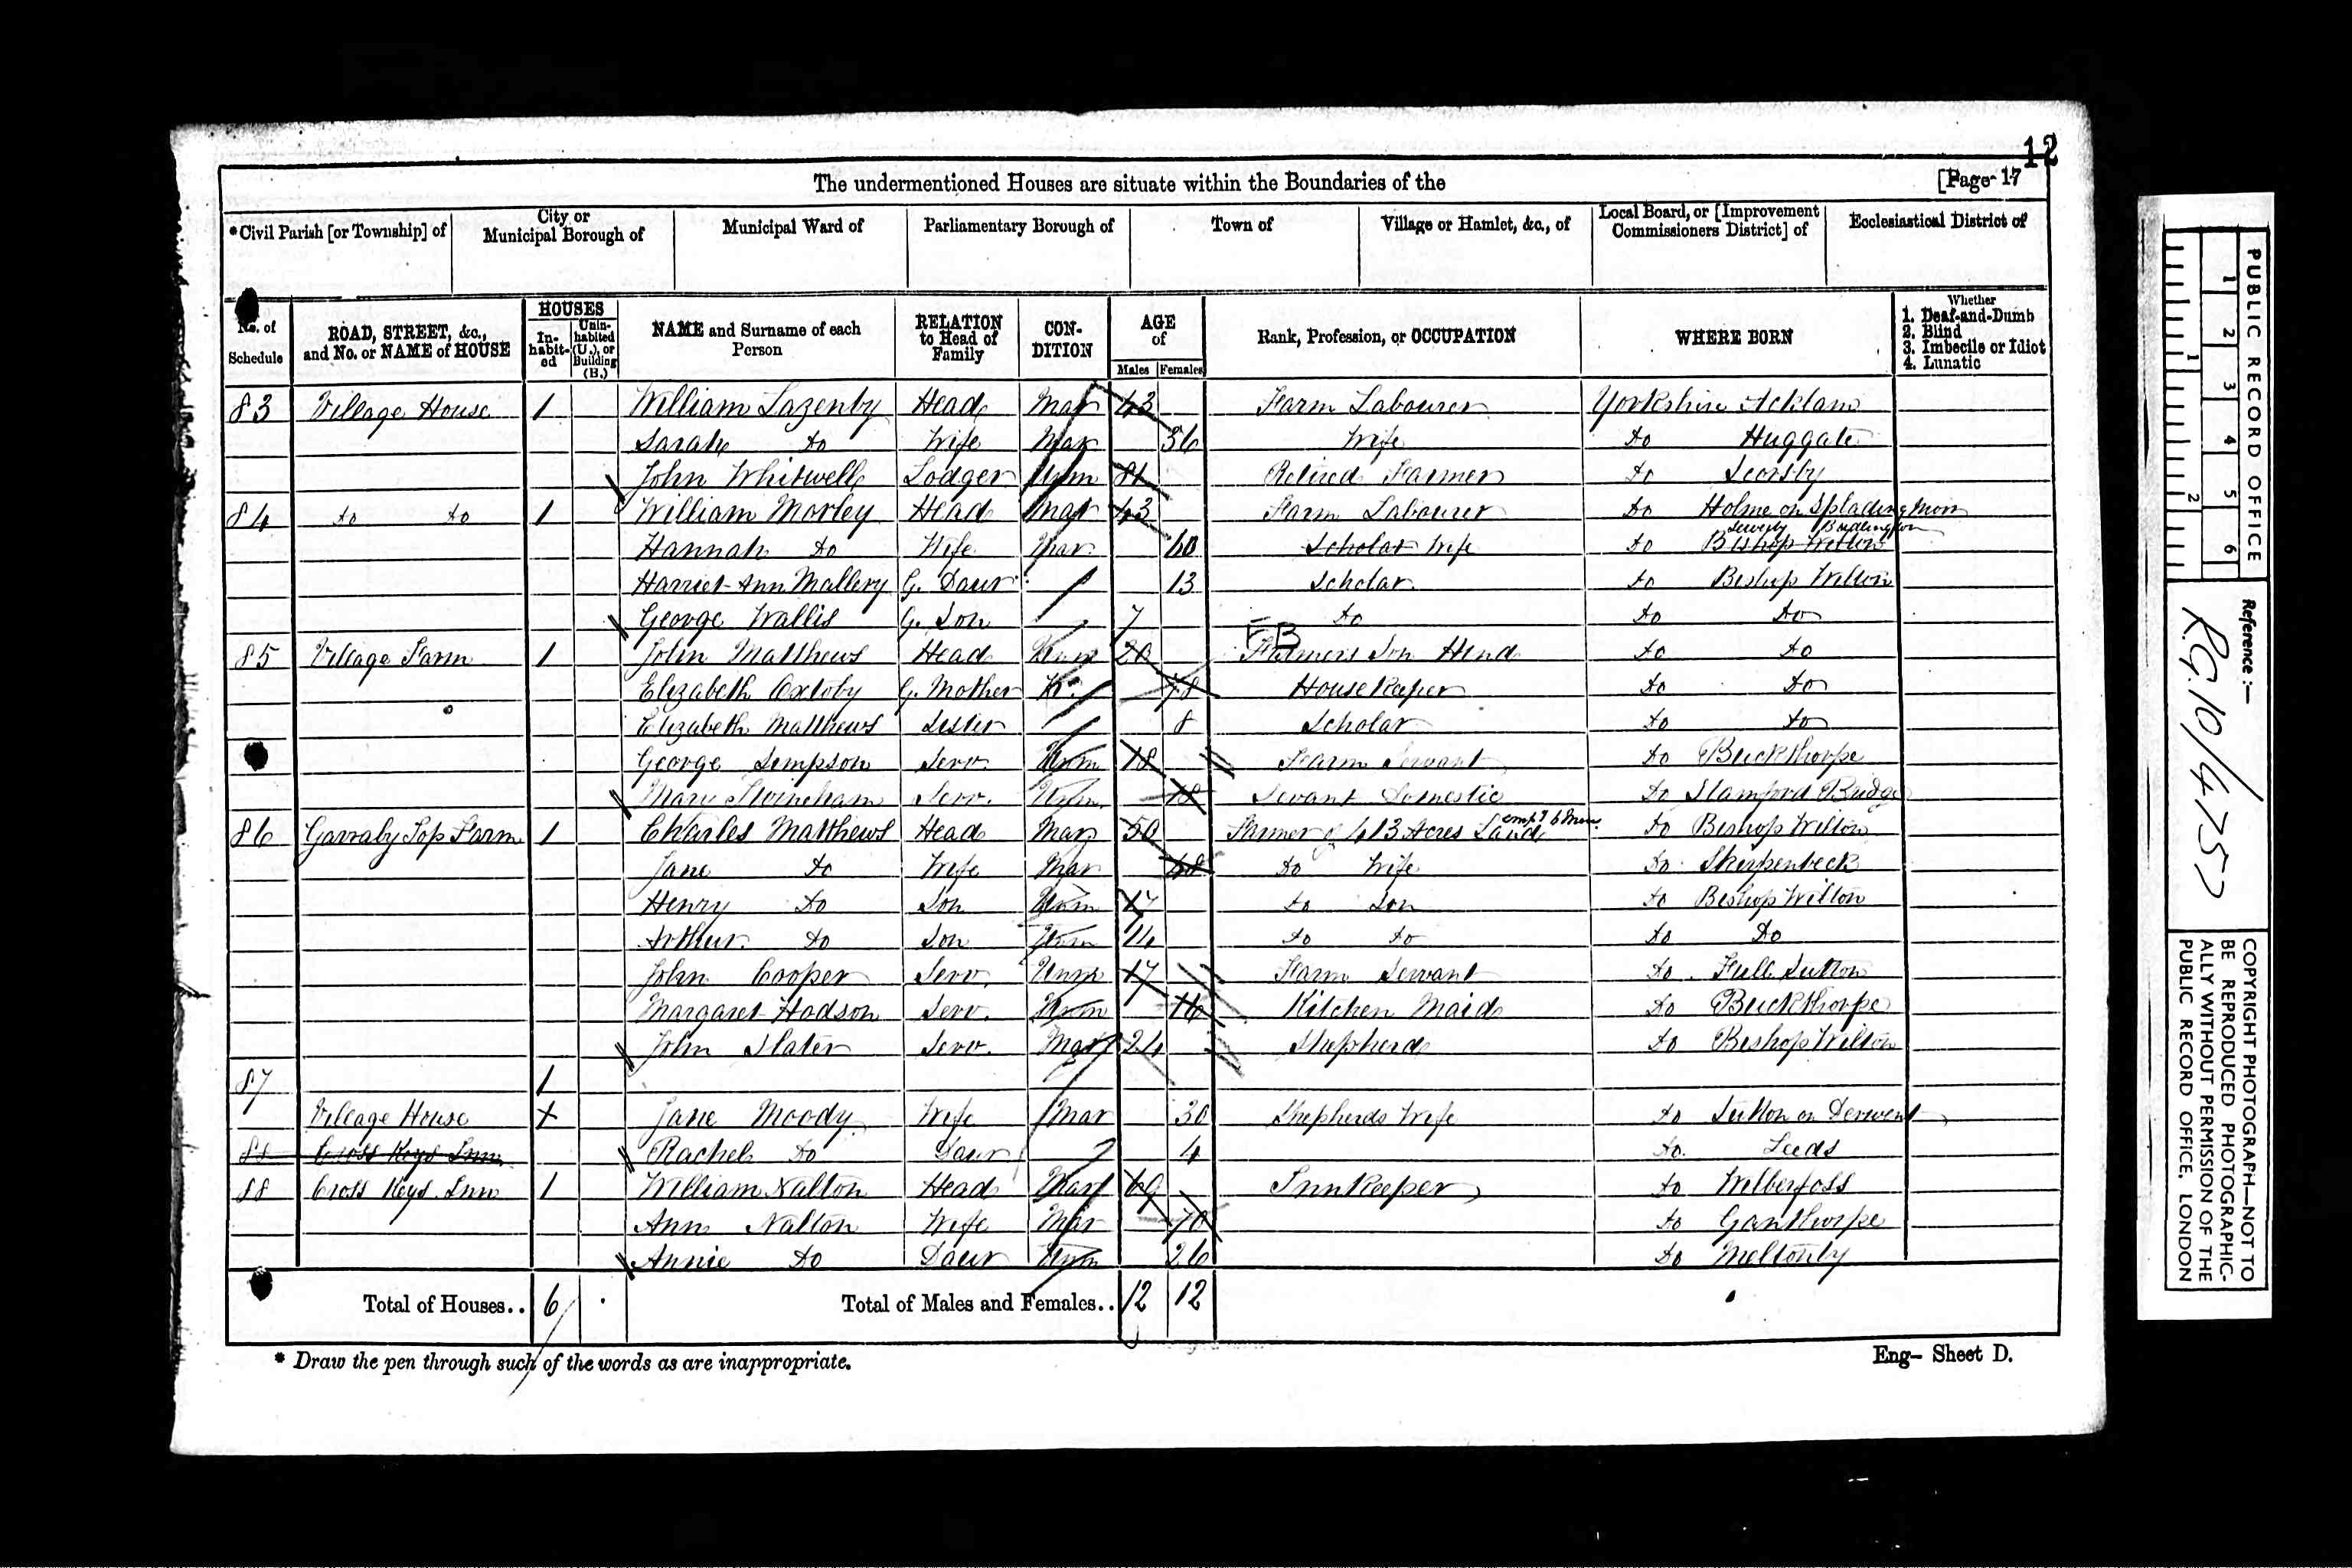 12
The undermentioned Houses are situate within the Boundaries of the [Page 17
*Civil Parish [or Township] of
City or Municipal Borough of
Municipal Ward of
Parliamentary Borough of
Town of
Village or Hamlet, &c., of
Local Board, or [Improvement Commissioners District] of
Ecclesiastical District of
No. of Schedule
ROAD, STREET, &c., and No. or NAME of HOUSE
HOUSES
In-habit-ed
Unin-habited (U.), or Building (B.)
NAME and Surname of each Person
RELATION to Head of Family
CON-DITION
AGE of
Males Females
Rank, Profession, or OCCUPATION
WHERE BORN
Whether
1. Deaf-and-Dumb
2. Blind
3. Imbecile or Idiot
4. Lunatic
83 Village House 1 William Lazenby Head Mar 43 Farm Labourer Yorkshire Acklam
Sarah do Wife Mar 36 Wife do Huggate
John Whitwell Lodger Unm 81 Retired Farmer do
84 do do 1 William Morley Head Mar 43 Farm Labourer do Holme on Splading Moor
Bridlington
Hannah do Wife Mar 60 Scholar Wife do Bishop Wilton
Harriet Ann Mallery G. Daur 13 Scholar do Bishop Wilton
George Wallis G. Son 7 do do do
FB
85 Village Farm 1 John Matthews Head Unm 20 Farmers Son Hind do do
Elizabeth Oxtoby G. Mother W. 78 Housekeeper do do
Elizabeth Matthews Sister 8 Scholar do do
George Simpson Serv. Unm 18 Farm Servant do Buckthorpe
Mary Serv. Unm. 18 Servant Domestic do Stamford Bridge
86 Garraby Top Farm 1 Charles Matthews Head Mar 50 Farmer of 413 Acres Land empg 6 Men do Bishop Wilton
Jane do Wife Mar 48 do Wife do Skirpenbeck
Henry do Son Unm 17 do Son do Bishop Wilton
Arthur do Son Unm 14 do do do Do
John Cooper Serv. Unm 17 Farm Servant do Full Sutton
Margaret Hodson Serv. Unm 16 Kitchen Maid do Buckthorpe
John Slater Serv. Mar 24 Shepherd do Bishop Wilton
87 1
Village House + Jane Moody Wife Mar 30 Shepherds Wife do Sutton on Derwent
88 Cross Keys Inn Rachel do Daur 4 do Leeds
88 Cross Keys Inn 1 William Nalton Head Mar 69 Innkeeper do Wilberfoss
Ann Nalton Wife Mar 70 do Ganthorpe
Annie do Daur Unm 26 do Meltonby
Total of Houses.. 6 Total of Males and Females.. 12 12
* Draw the pen through such of the words as are inappropriate.
Eng- Sheet D.
PUBLIC RECORD OFFICE
1 2 3 4 5 6
1 2
Reference :-
R.G. 10/4757
COPYRIGHT PHOTOGRAPH-NOT TO
BE REPRODUCED PHOTOGRAPHIC-
ALLY WITHOUT PERMISSION OF THE
PUBLIC RECORD OFFICE, LONDON